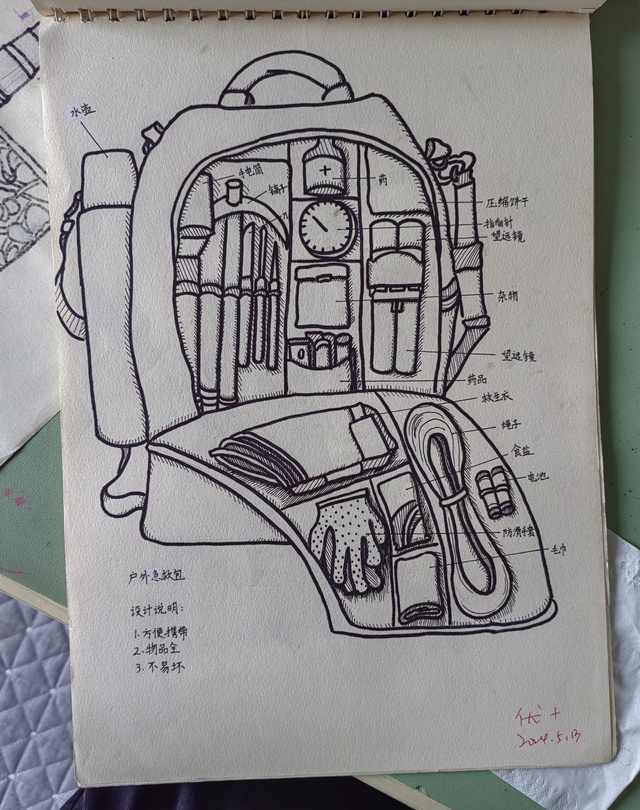 水壶
手电筒
镊子
刀
药
压缩饼干
指南针
望远镜
杂物
望远镜
药品
救生衣
绳子
食盐
电池
防滑手套
毛巾
户外急救包
设计说明:
1.方便携带
2.物品全
3.不易坏
优+
2024.5.13